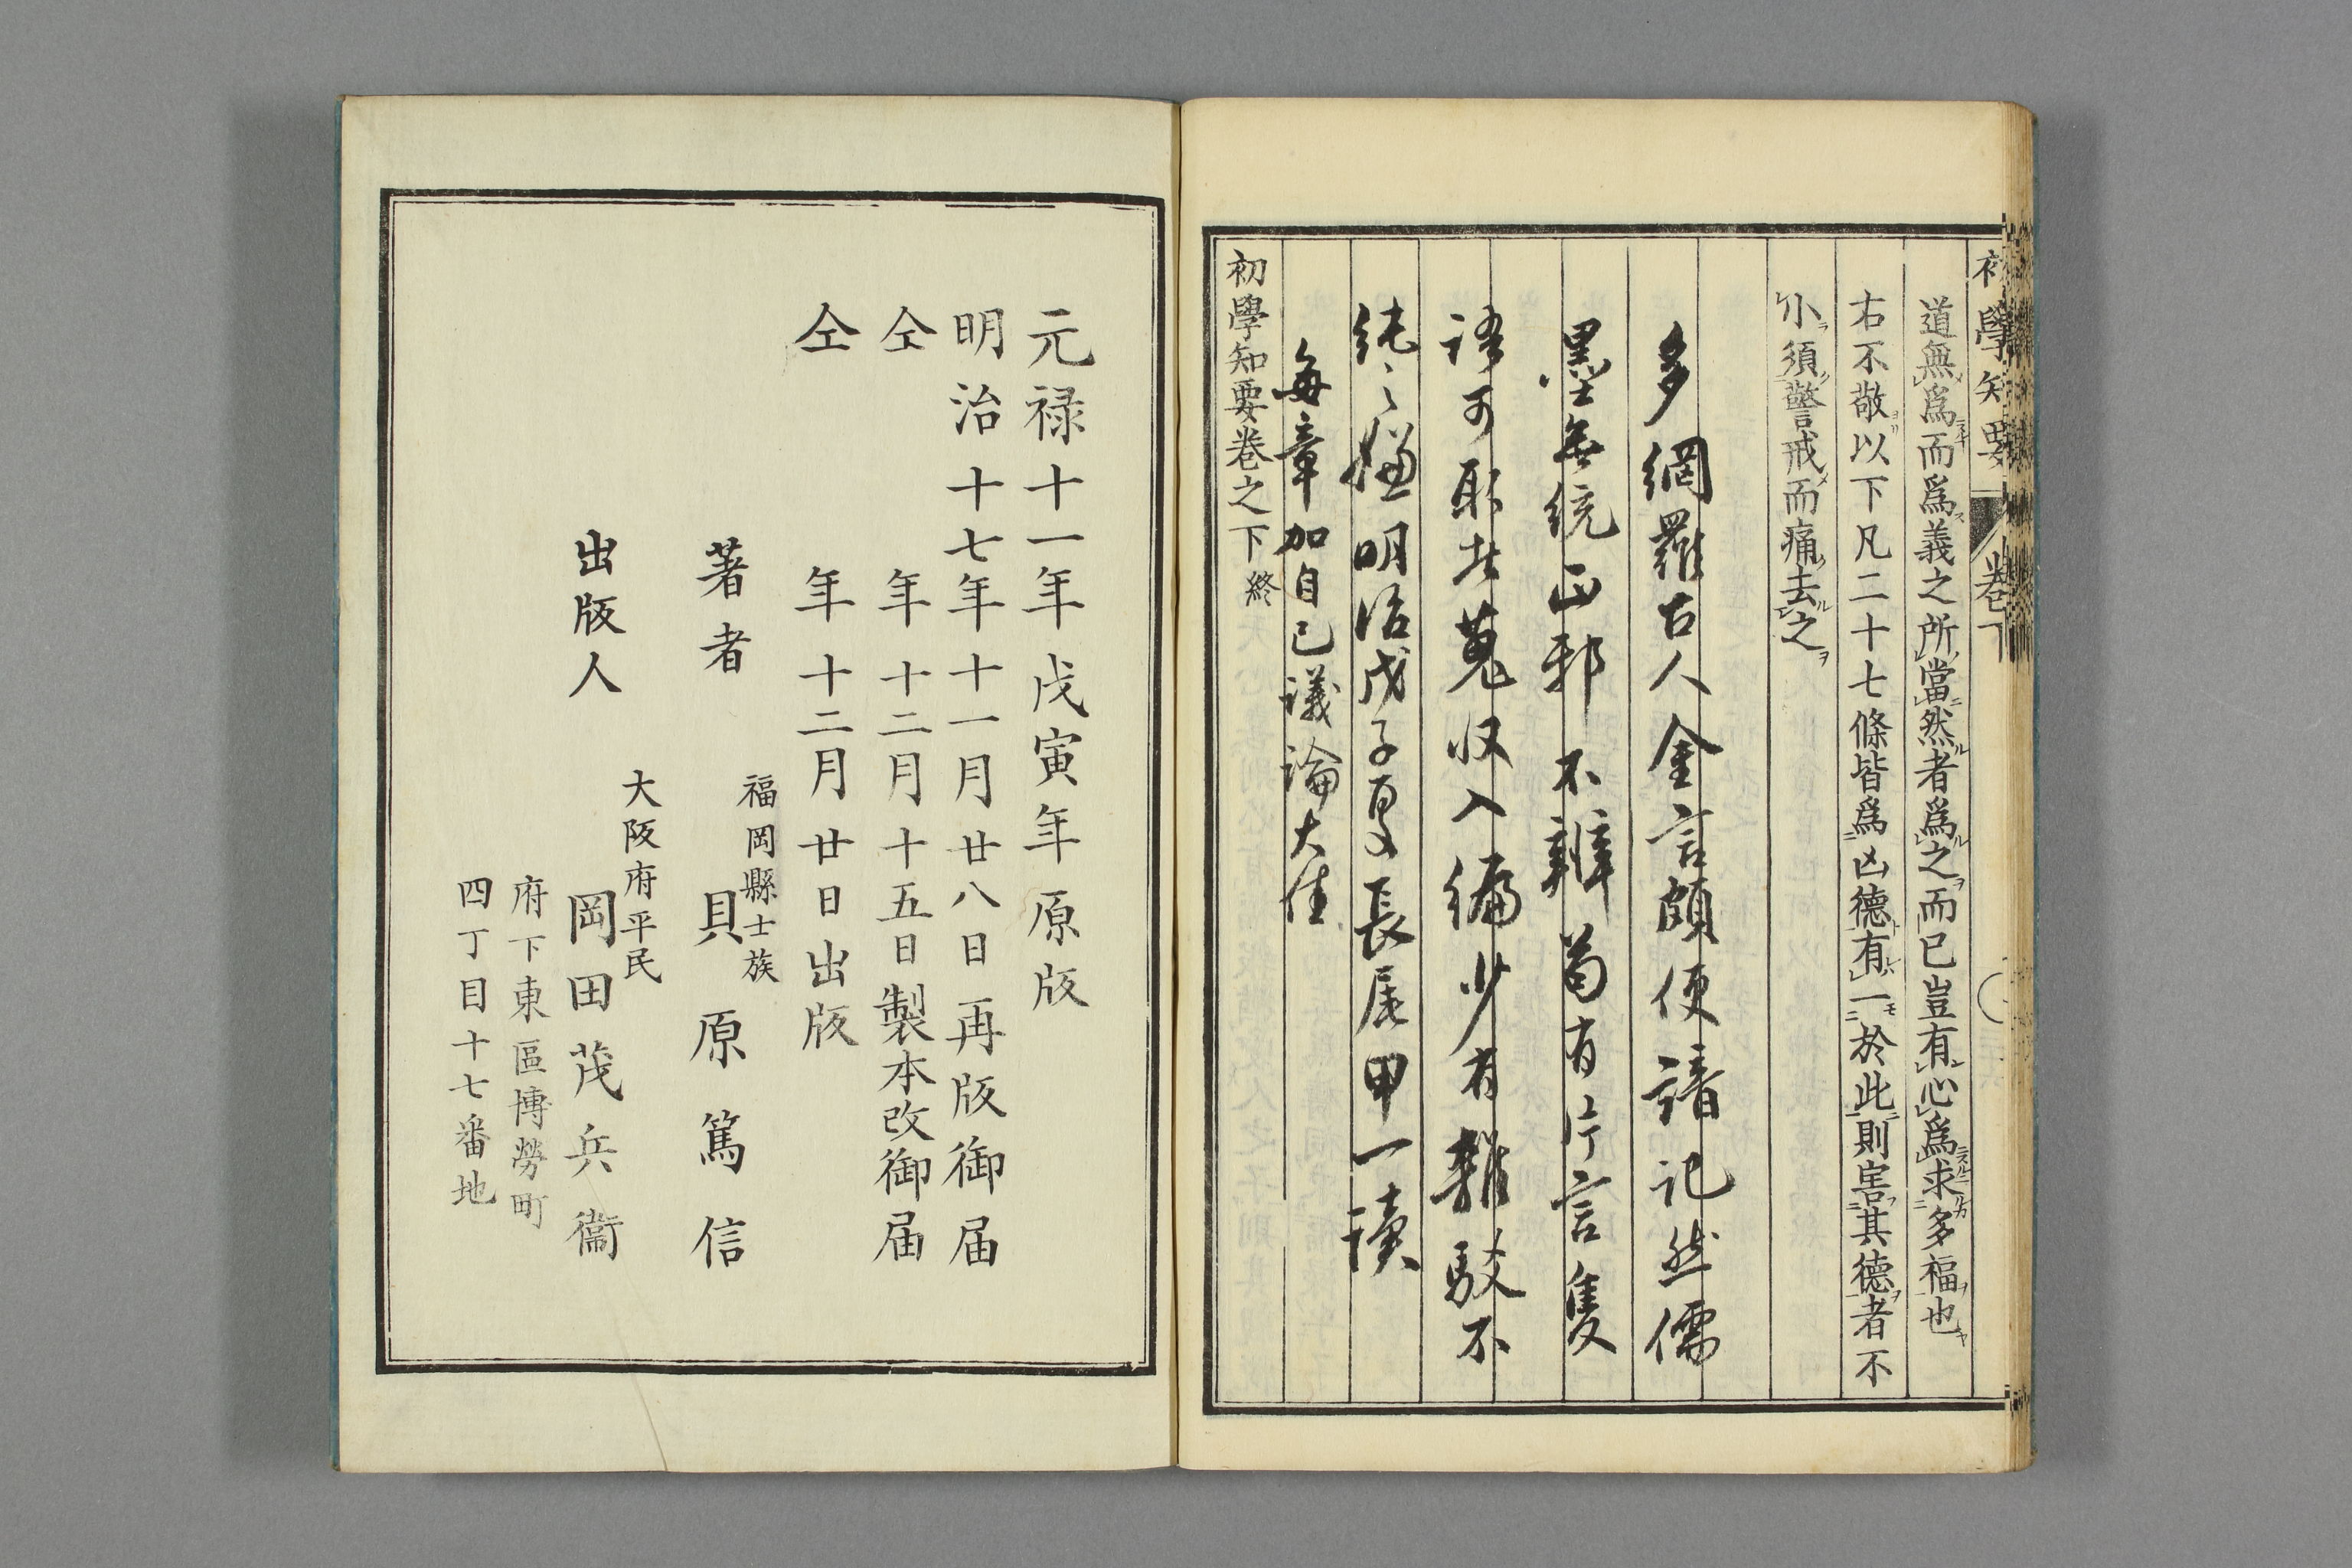 初學知要 卷下
道無爲而爲義之所當然者爲之而已豈有心爲求多福也
右不敬以下凡二十七條皆爲凶德有一於此則害其德者不
小須警戒而痛去之
多網羅古人金言頗便諳記然儒
墨無統正邪不辨苟有片言隻
語可取者蒐収入編少有雜駁不
純之嫌明治戊子夏長尾甲一讀
每章加自己議論大佳
初學知要卷之下終
元禄十一年戊寅年原版
明治十七年十一月廿八日再版御届
仝 年十二月十五日製本改御届
仝 年十二月廿日出版
福岡縣士族
著者 貝原篤信
大阪府平民
出版人 岡田茂兵衞
府下東區博勞町
四丁目十七番地